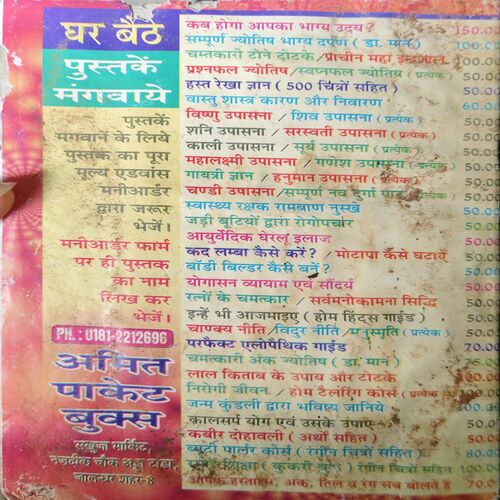 घर बैठे
पुस्तकें
मंगवाये
पुस्तकें
मगवानें के लिये
पुस्तक का पूरा
मूल्य एडवांस
मनीआर्डर
द्वारा जरूर
भेजें।
मनीआर्डर फार्म
पर ही पुस्तक
का नाम
लिख कर
भेजें।
PH. : 0181-2212696
अमित
पाकेट
बुक्स
मार्किट,
नजदीक चौक
जालन्धर शहर 8
कब होगा आपका भाग्य उदय? 150.00
सम्पूर्ण ज्योतिष भाग्य दर्पण ( डा. मान ) 100.00
चमत्कारी टोने टोटके/प्राचीन महा इन्द्रजाल
प्रश्नफल ज्योतिष/स्वप्नफल ज्योतिष ( प्रत्येक )
हस्त रेखा ज्ञान ( 500 चित्रों सहित ) 100.0
वास्तु शास्त्र कारण और निवारण 60.0
विष्णु उपासना / शिव उपासना ( प्रत्येक ) 50.0
शनि उपासना/ सरस्वती उपासना ( प्रत्येक ) 50.0
काली उपासना/ सूर्य उपासना ( प्रत्येक ) 50.0
महालक्ष्मी उपासना/ गणेश उपासना ( प्रत्येक ) 50.0
गायत्री ज्ञान / हनुमान उपासना ( प्रत्येक ) 50.0
चण्डी उपासना/ सम्पूर्ण नव दुर्गा 50.0
स्वास्थ्य रक्षक रामबाण नुस्खे 50.0
जड़ी बूटियों द्वारा रोगोपचार 50.0
आयुर्वेदिक घेरलू इलाज 50.0
कद लम्बा कैसे करें? / मोटापा कैसे घटाऐं 50.0
बॉडी बिल्डर कैसे बनें? 50.0
योगासन व्यायाम एवं सौंदर्य 50.0
रत्नों के चमत्कार / सर्वमनोकामना सिद्धि 50.0
इन्हें भी आजमाइए ( होम हिंट्स गाईड ) 50.0
चाणक्य नीति/विदुर नीति/मनुस्मृति ( प्रत्येक ) 50.0
परफेक्ट एलोपैथिक गाईड 70.0
चमत्कारी अंक ज्योतिष ( डा. मान ) 75.0
लाल किताब के उपाय और टोटके 100.0
निरोगी जीवन / होम टैलरिंग कोर्स ( प्रत्येक 100.0
जन्म कुंडली द्वारा भविष्य जानिये 100.0
कालसर्प योग एवं उसके उपाए 50.0
कबीर दोहावली ( अर्थों सहित ) 80.0
ब्यूटी पार्लर कोर्स ( रंगीन चित्रों सहित )
शिक्षा ( कुकरी बुक ) रंगीन चित्रों सहित
आपके हस्ताक्षर, अंक, तिल व रंग सब बोलते है 70.0